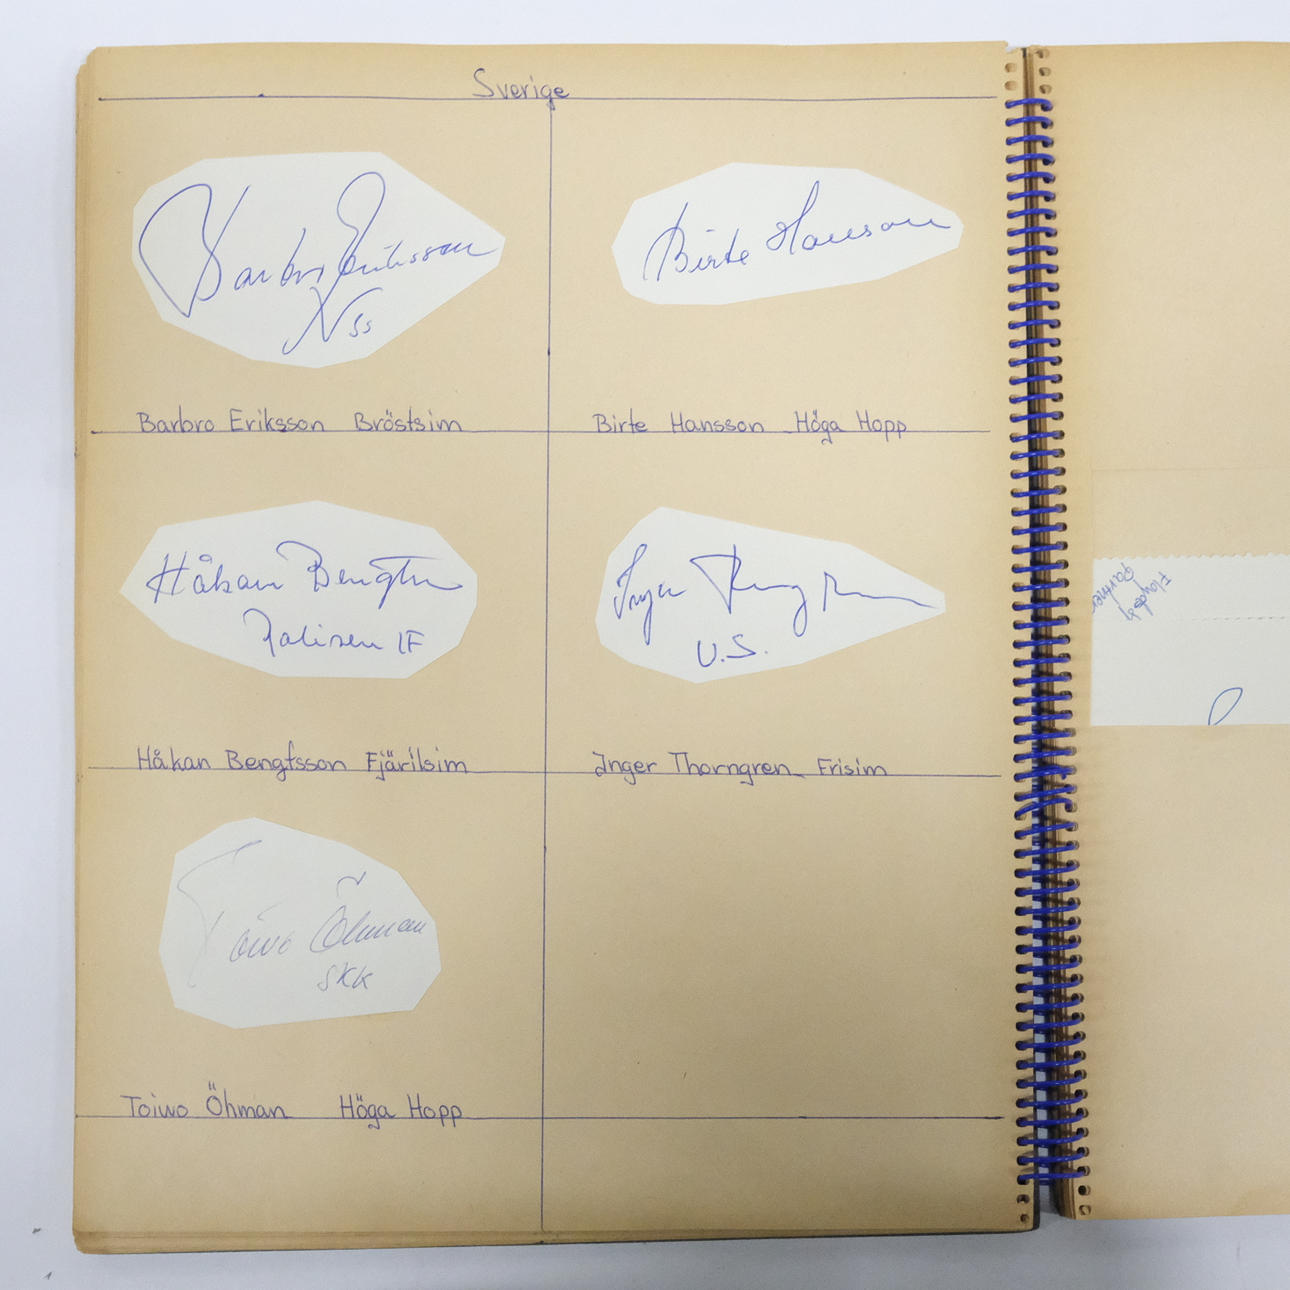 Sverige
Barbro Eriksson
Nss
Barbro Eriksson Bröstsim
Birte Hansson
Birte Hansson Höga Hopp
Håkan Bengtsson
Polisen IF
Håkan Bengtsson Fjärilsim
Inger Thorngren
U.S.
Inger Thorngren Frisim
Toivo Öhman
SKK
Toivo Öhman Höga Hopp